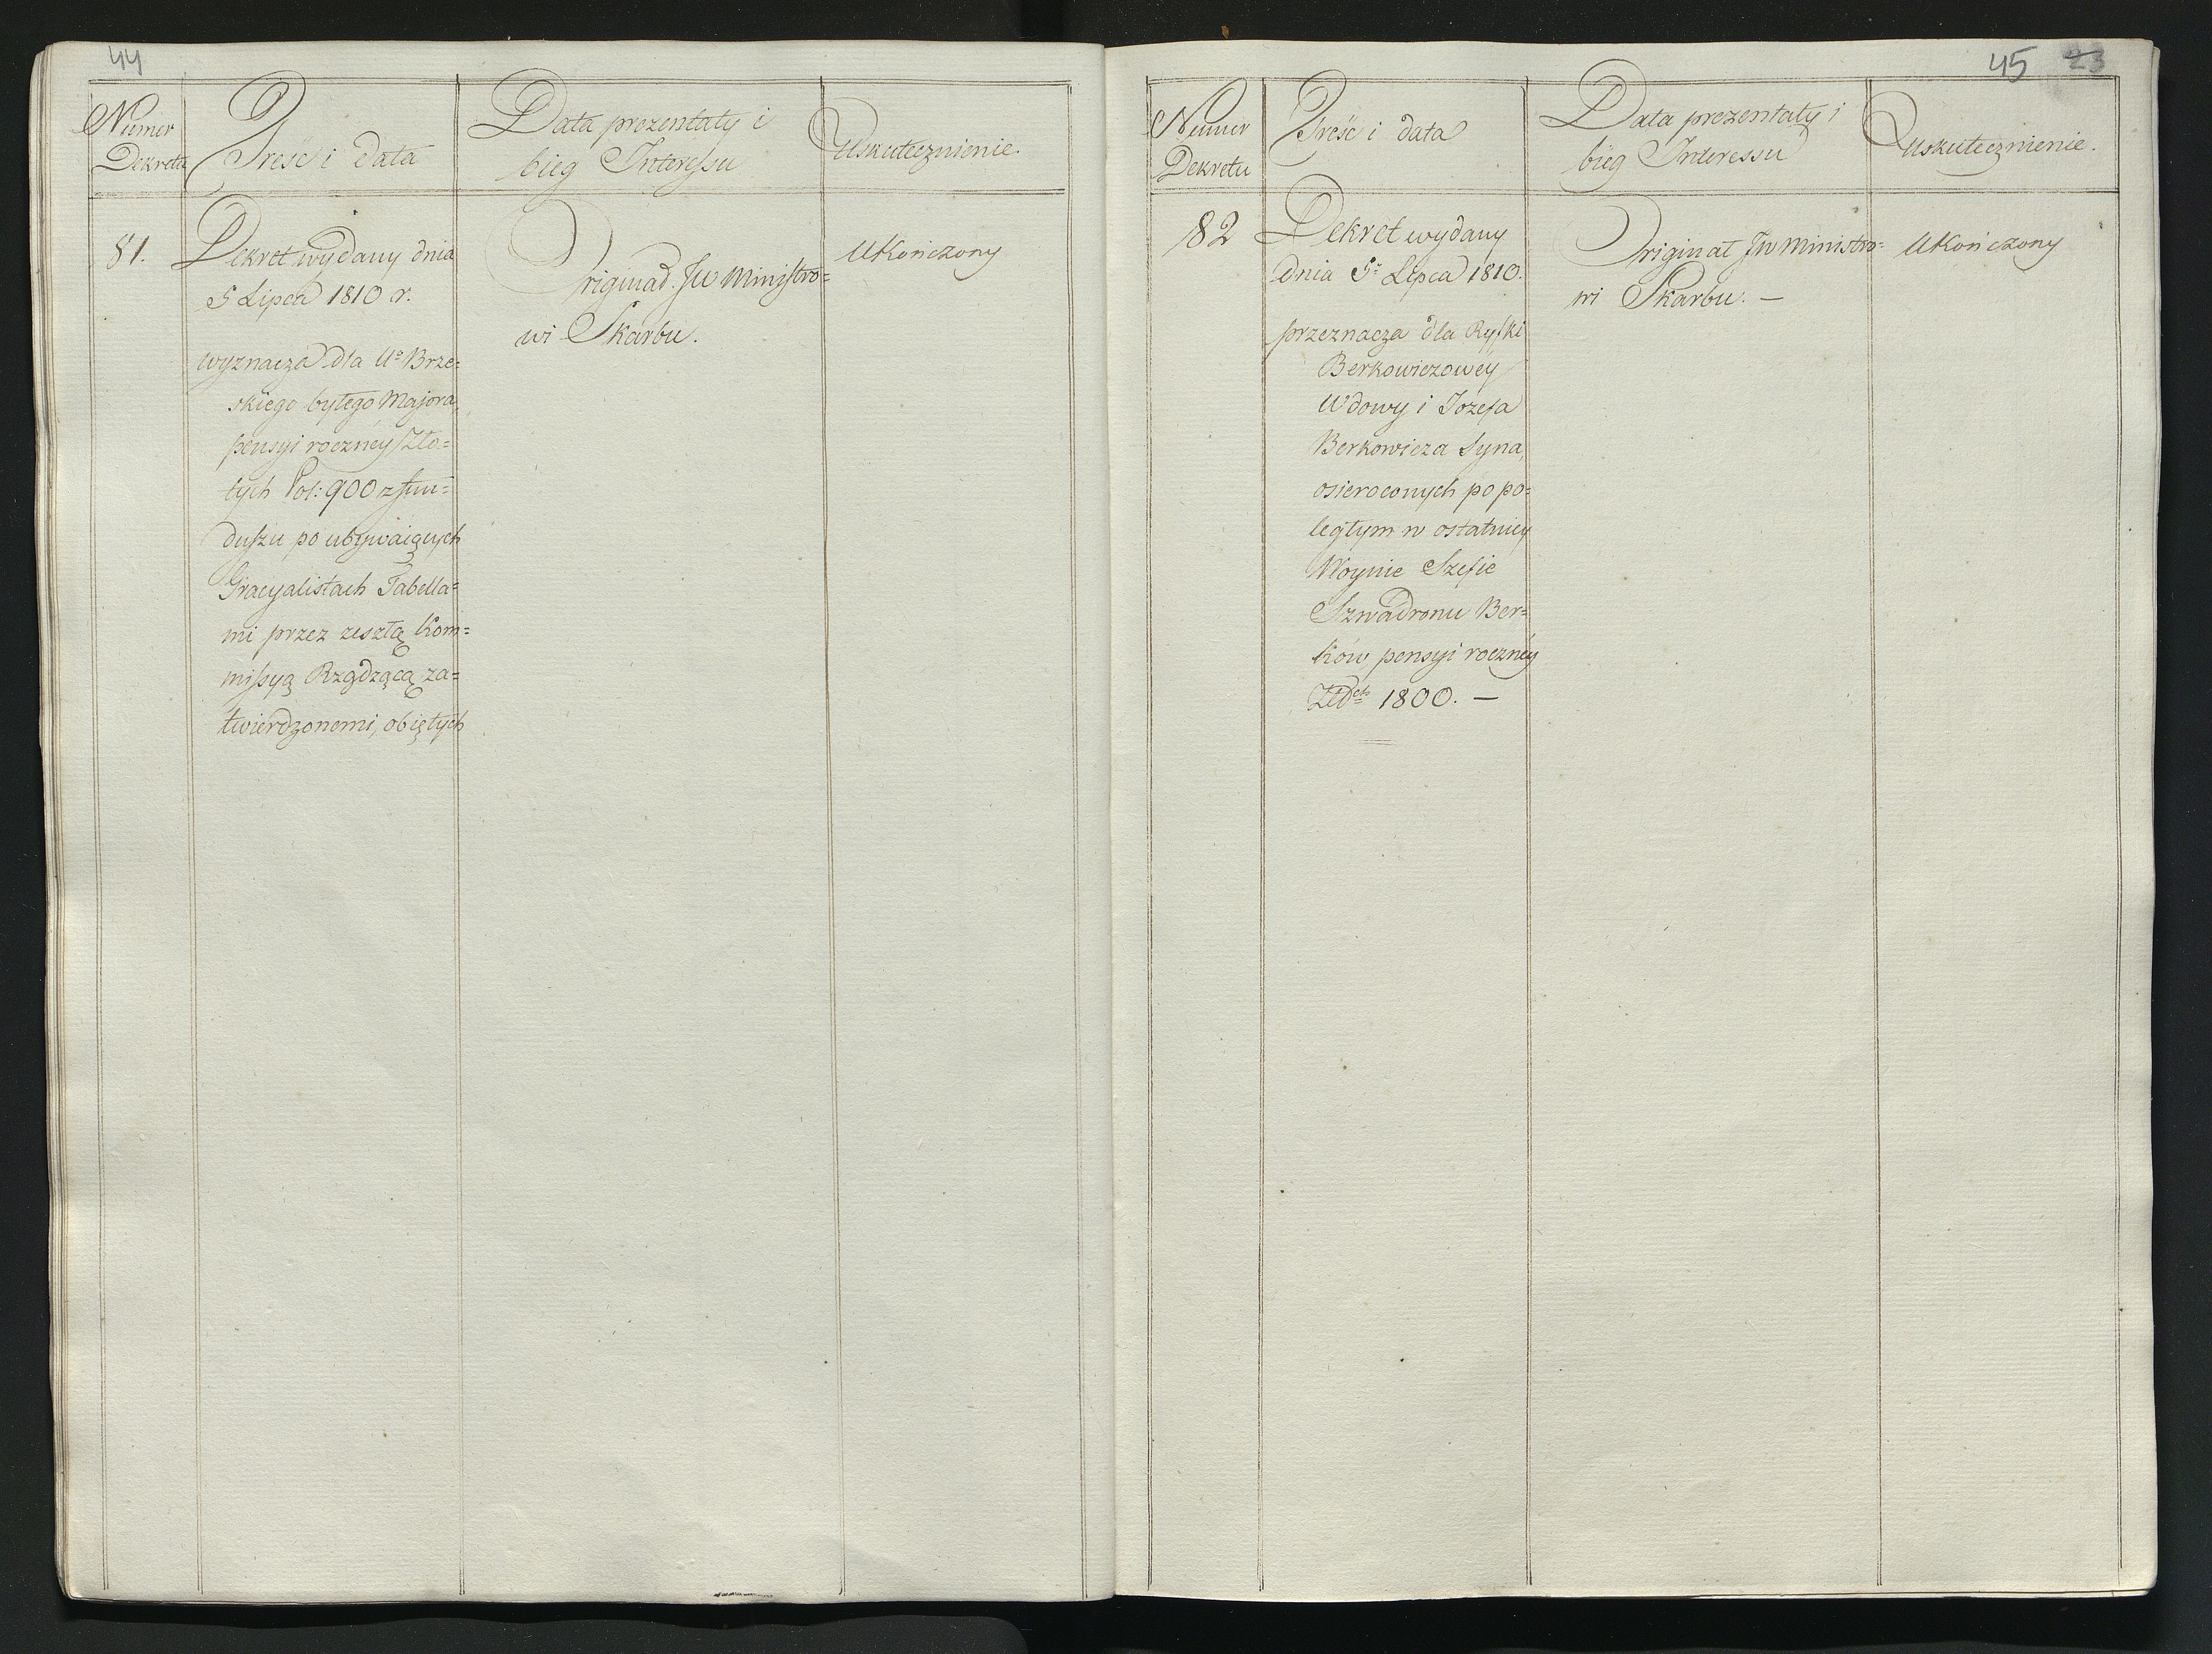 44
Numer
Dekretu
Treść i data
Data prezentaty i
bieg Interessu
Uskutecznienie.
81.
Dekret wydany dnia
5 Lipca 1810 r.
wyznacza dla Uo Brze=
skiego byłego Majora,
pensyi roczney Zło=
tych Pol: 900 z fun=
duszu po ubywaiących
Gracyalistach Tabella=
mi przez zeszłą Kom=
missyą Rządzącą za=
twierdzonemi, obiętych
Originał JW Ministro=
wi Skarbu.
Ukończony
45 23
Numer
Dekretu
Treść i data
Data prezentaty i
bieg Interessu
Uskutecznienie.
82
Dekret wydany
dnia 5o Lipca 1810.
przeznacza dla Ryfki
Berkowiczowey
Wdowy i Jozefa
Berkowicza Syna,
osieroconych po po=
ległym w ostatniey
Woynie Szefie
Szwadronu Ber=
ków pensyi roczney
1800. —
Originał JW Ministro=
wi Skarbu. —
Ukończony